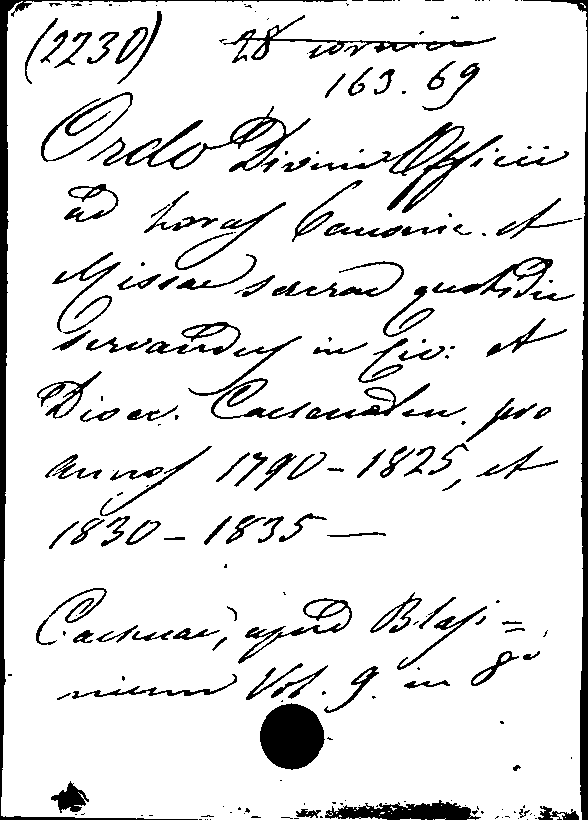 (2230) 28 cornice
163. 69
Ordo Divini Officii
ad horas Canonic. et
Missae sacrae quotidie
servandus in Civ: et
Dioec. Caesenaten. pro
annos 1790-1825, et
1830-1835 —
Caesenae, apud Blasi=
nium Vol. 9. in 8º